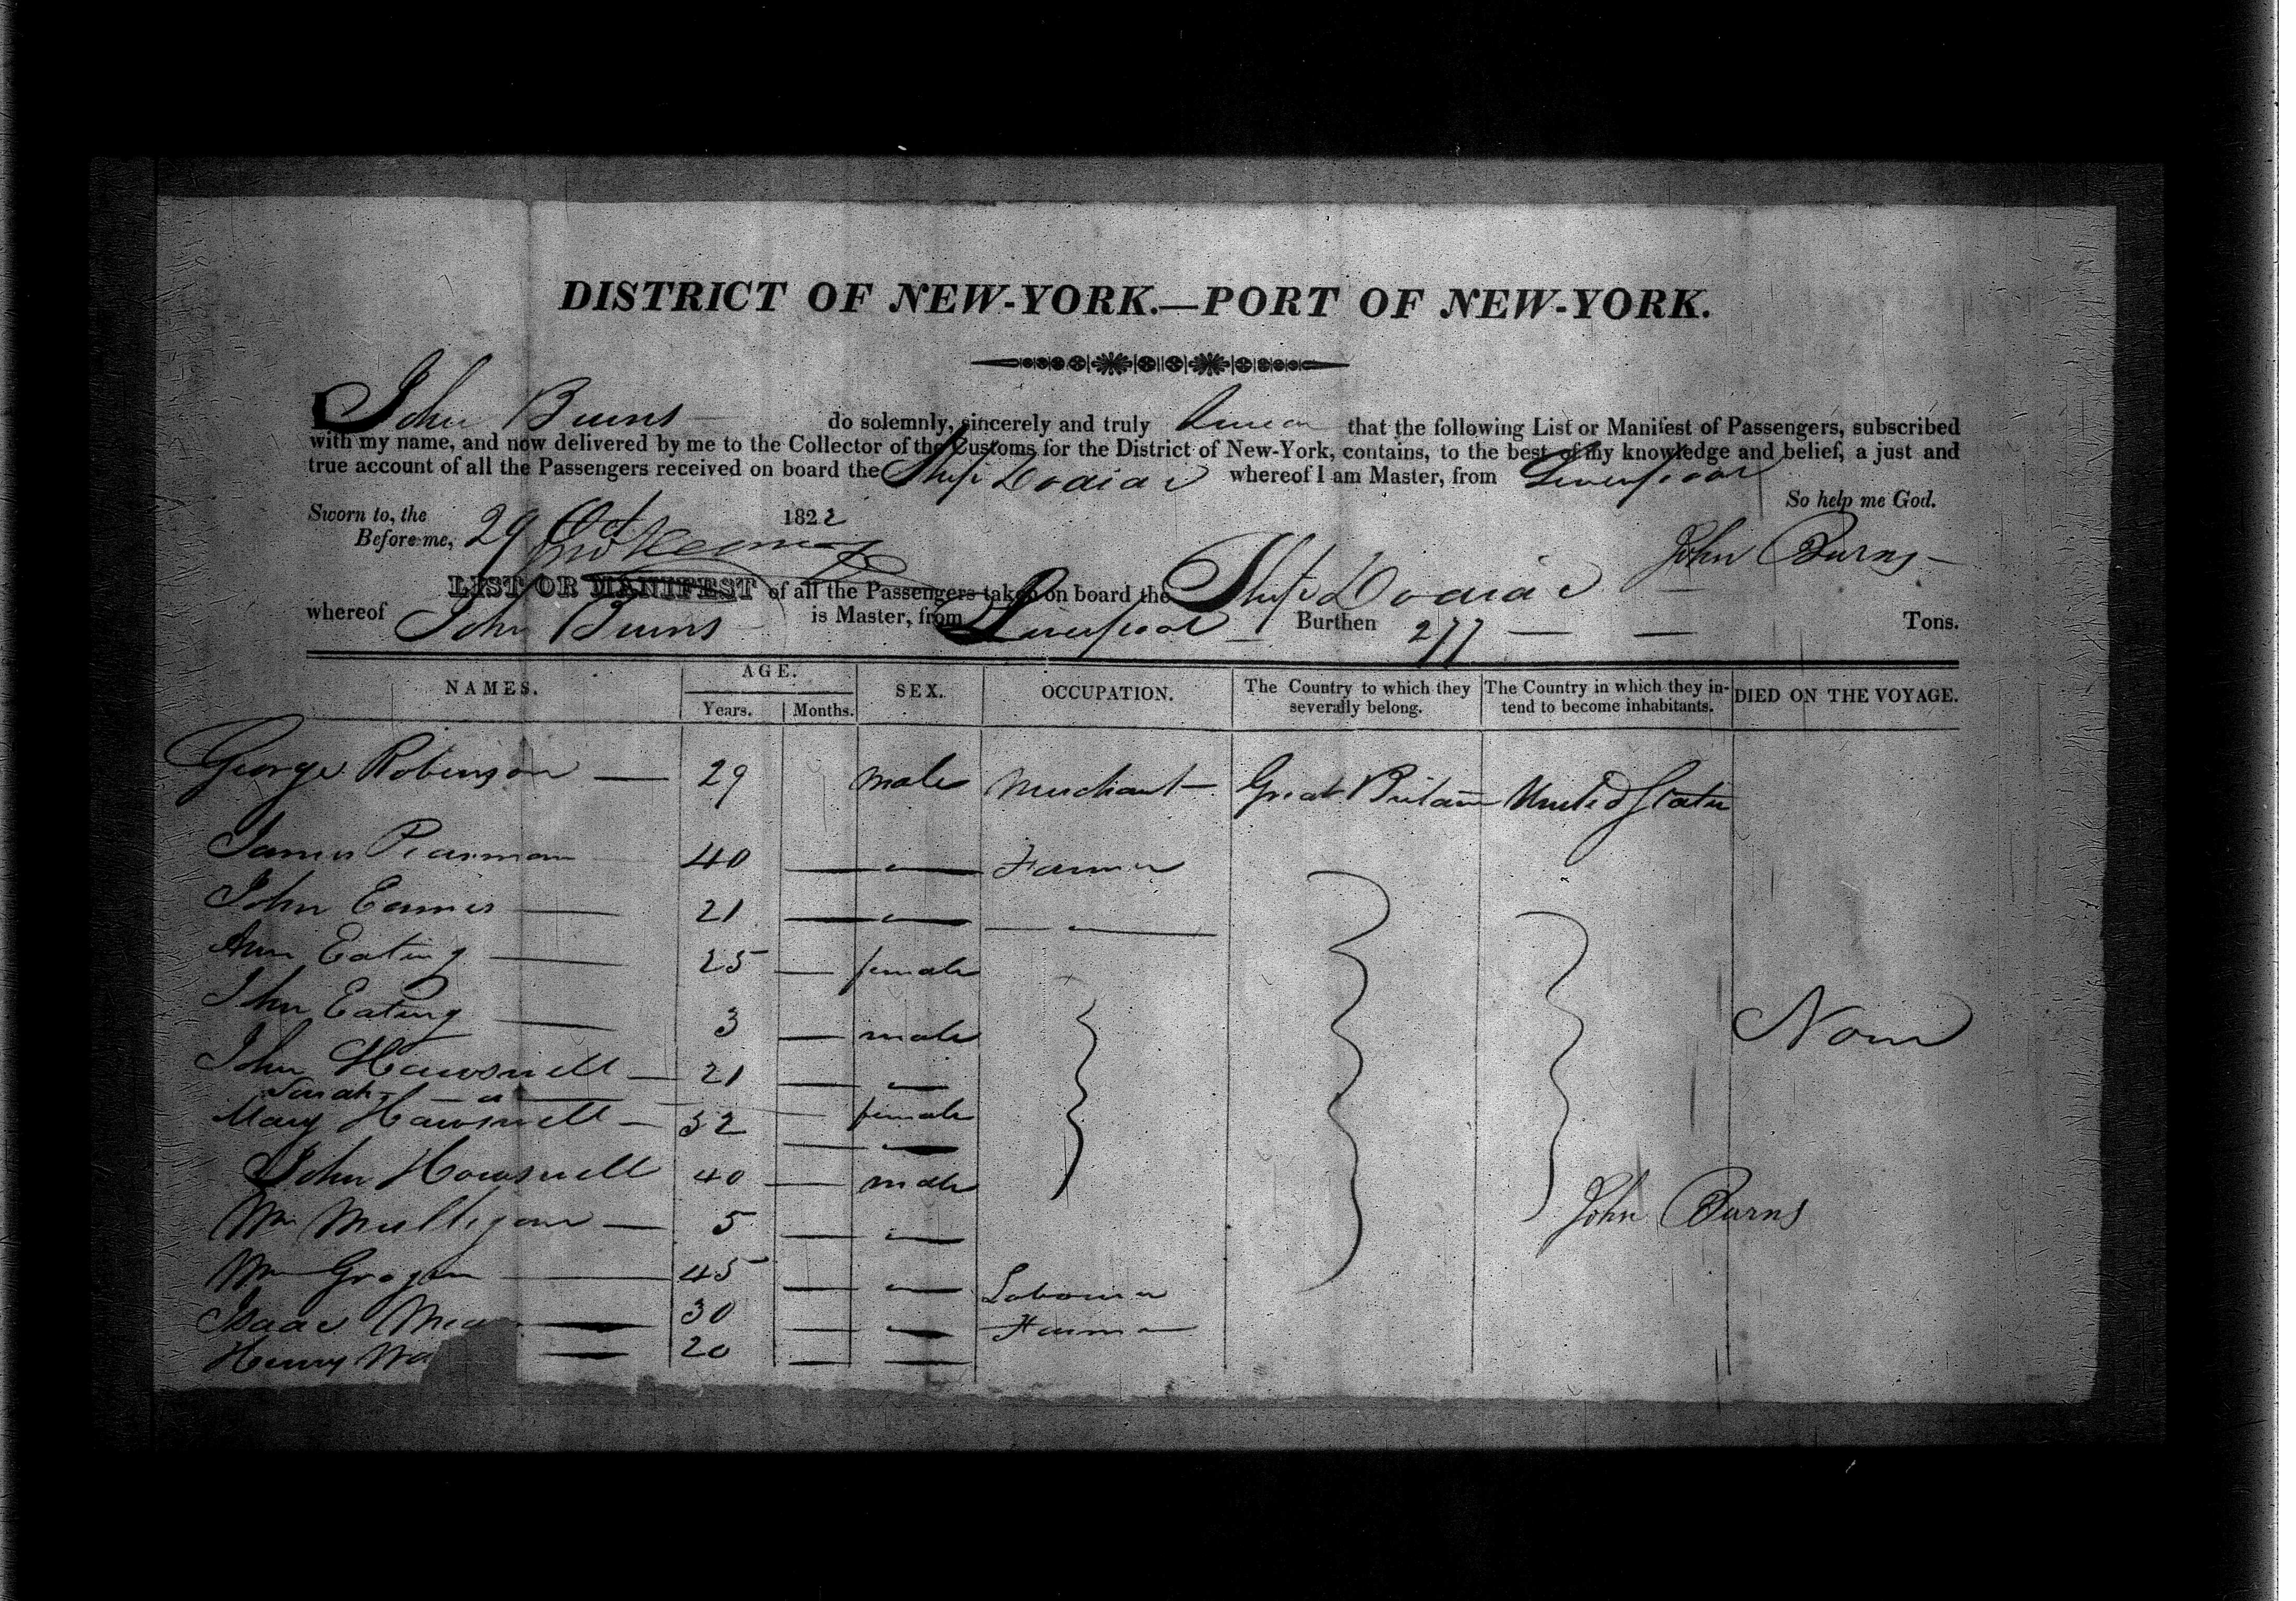 DISTRICT OF NEW-YORK.—PORT OF NEW-YORK.
I John Burns do solemnly, sincerely and truly swear that the following List or Manifest of Passengers, subscribed
with my name, and now delivered by me to the Collector of the Customs for the District of New-York, contains, to the best of my knowledge and belief, a just and
true account of all the Passengers received on board the Ship Zodiac whereof I am Master, from Liverpool
So help me God.
Sworn to, the 29 Oct 1822
Before me,
John Burns
LIST OR MANIFEST of all the Passengers taken on board the Ship Zodiac
whereof John Burns is Master, from Liverpool Burthen 277 Tons.
NAMES. AGE. SEX. OCCUPATION. The Country to which they severally belong. The Country in which they intend to become inhabitants. DIED ON THE VOYAGE.
Years. Months.
George Robinson — 29 male Merchant Great Britain United States
James Pearman 40 — " — Farmer
John Eames — 21 — " — — " —
Ann Eating — 25 — female
John Eating — 3 — male None
John Hawsnell — 21 — " —
Sarah — " —
Mary Hawsnell — 32 — female
— " —
John Hawsnell 40 — male
John Burns
Wm Mulligan — 5 — " —
Wm Grogan — 45 — " — Labourer
Isaac — 30 — " — Farmer
Henry — 20 — " —